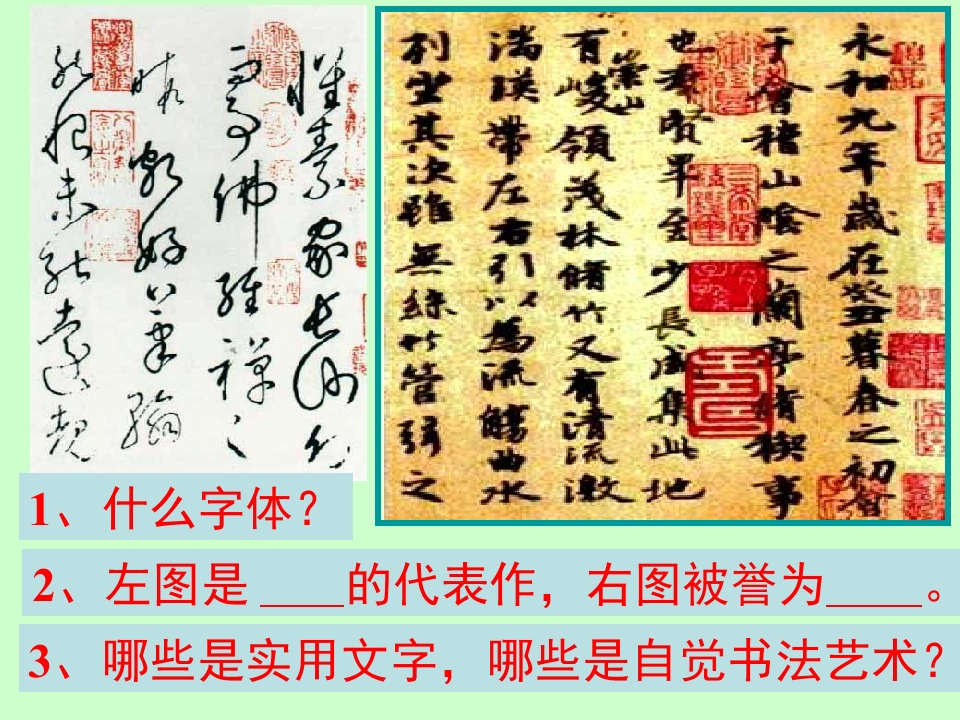 懷素家長沙幼
而事佛經禪之
暇頗好筆翰
然恨未能遠覩
永和九年歲在癸丑暮春之初會
于會稽山陰之蘭亭脩稧事
也羣賢畢至少長咸集此地
有崇山峻領茂林脩竹又有清流激
湍暎帶左右引以為流觴曲水
列坐其次雖無絲竹管弦之
1、什么字体？
2、左图是 ___的代表作，右图被誉为____。
3、哪些是实用文字，哪些是自觉书法艺术？